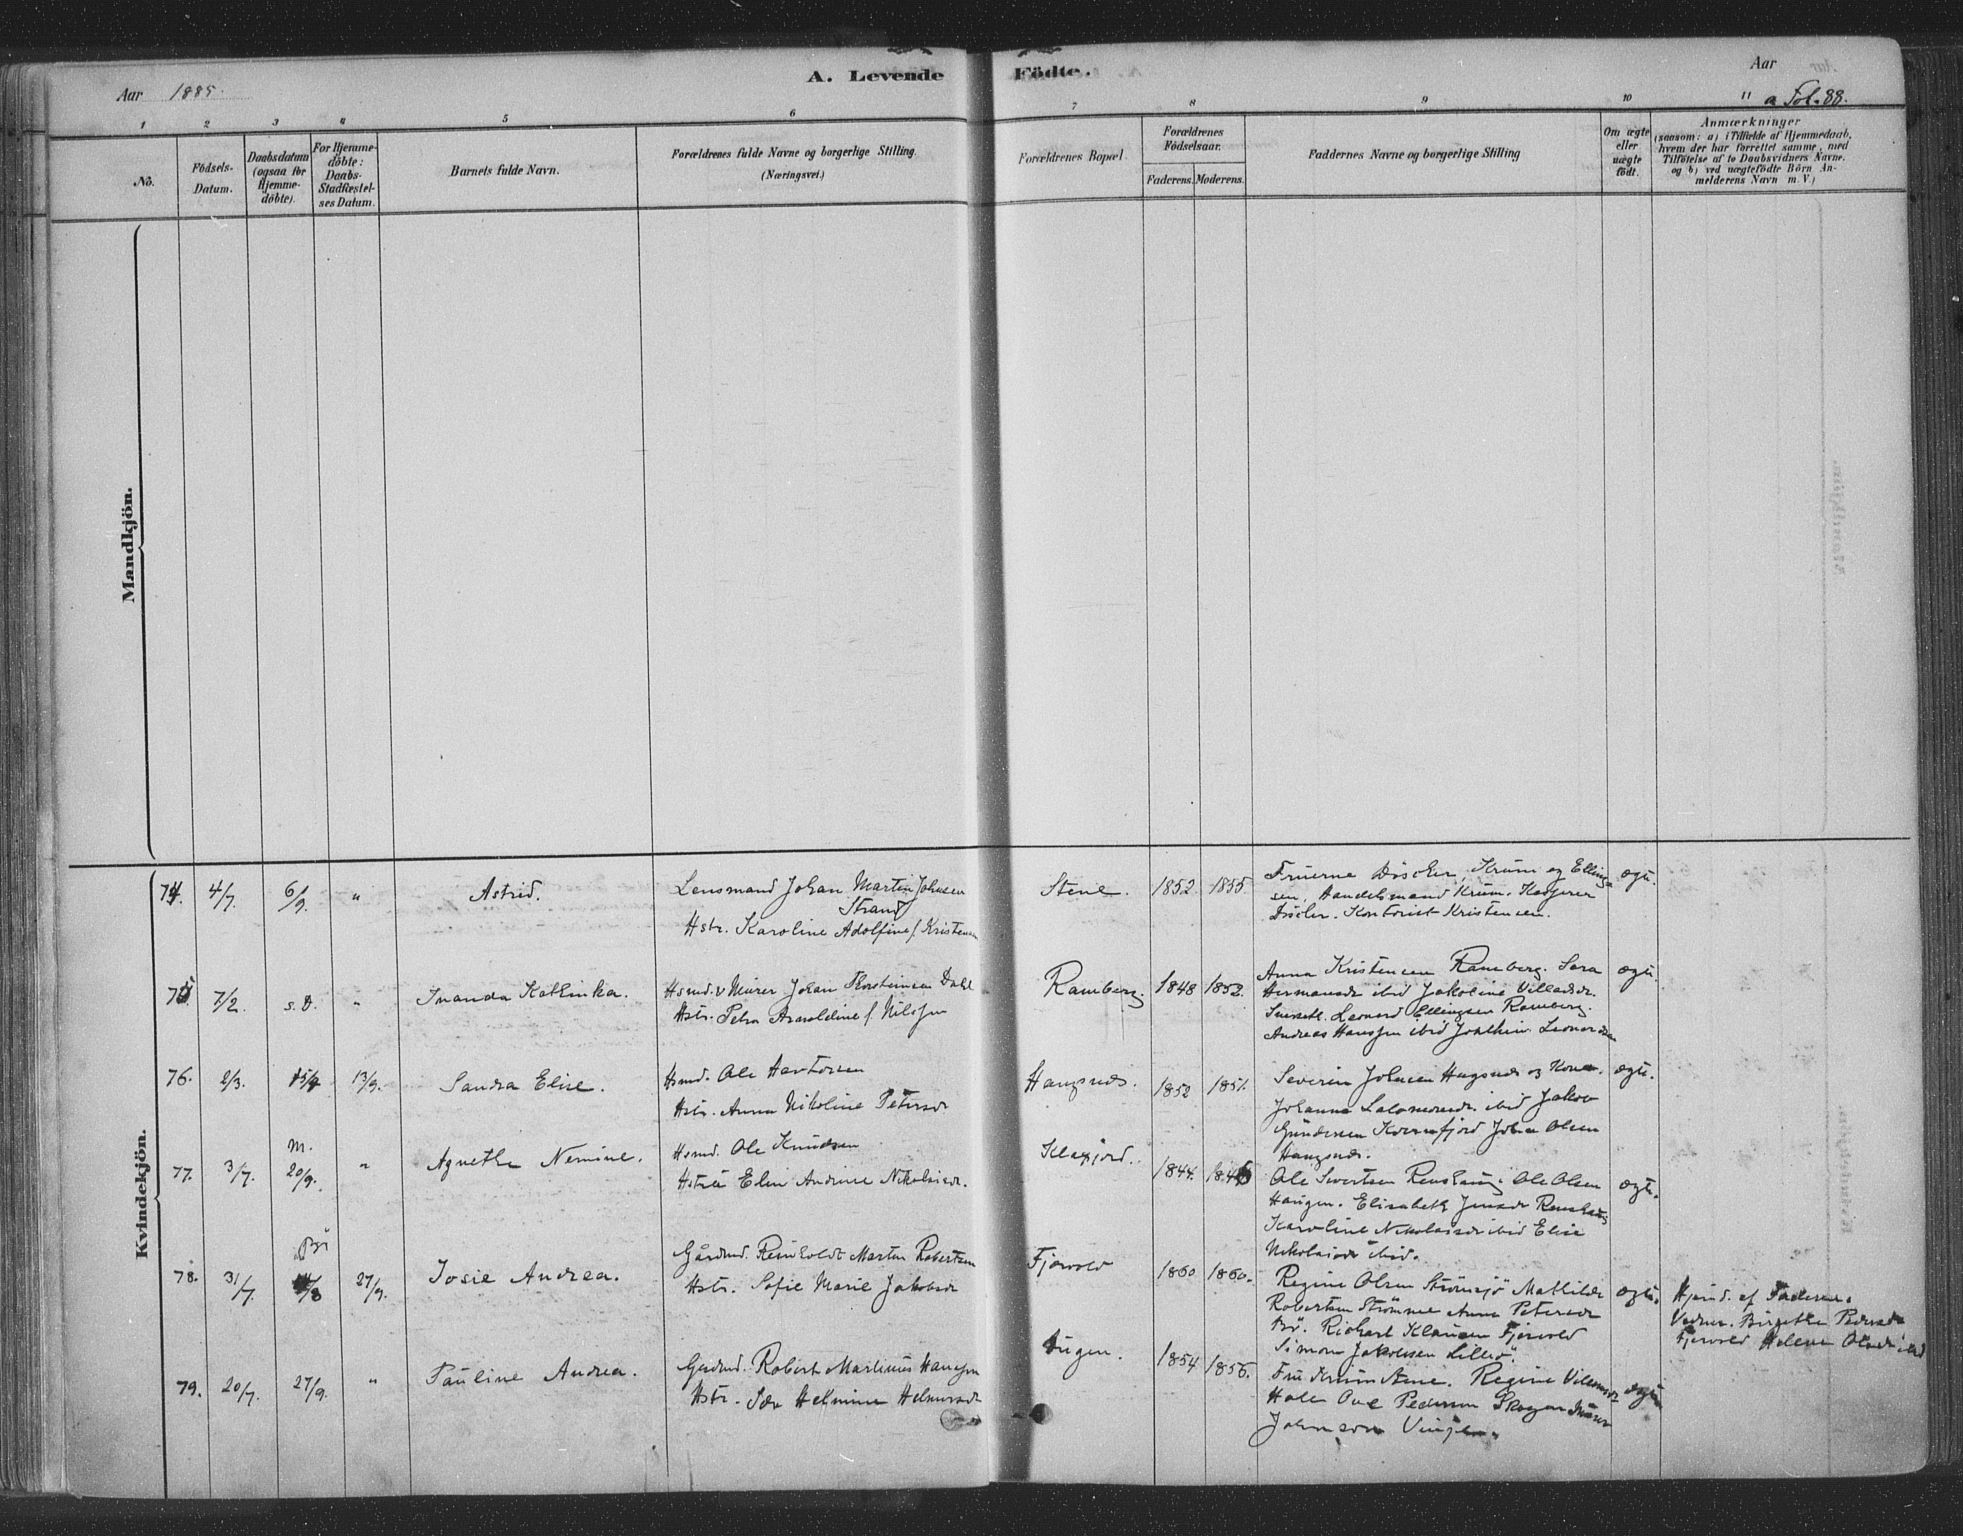 Aar 1885.
A. Levende Födte.
Aar
a Fol. 88.
1 2 3 4 5 6 7 8 9 10 11
No.
Födsels-Datum.
Daabsdatum (ogsaa for Hjemme-döbte).
For Hjemme-döbte: Daabs-Stadfæstel-ses Datum.
Barnets fulde Navn.
Forældrenes fulde Navne og borgerlige Stilling.
(Næringsvei.)
Forældrenes Bopæl
Forældrenes Födselsaar.
Faderens. Moderens.
Faddernes Navne og borgerlige Stilling
Om ægte eller uægte födt.
Anmærkninger
(saasom: a) i Tilfælde af Hjemmedaab,
hvem der har forrettet samme, med
Tilföielse af to Daabsvidners Navne.
og b) ved uægtefödte Börn An-
melderens Navn m. V.)
Mandkjön.
Kvindekjön.
74. 4/7. 6/9. " Astrid.
Lensmand Johan Martin Johnsen
Strand
Hstr. Karoline Adolfine f. Kristensen
Stene. 1852. 1855.
Fruerne Döscher, Krum og Elling-
sen. Handelsmand Krum. Kasserer
Döscher. Kontorist Kristensen.
ægte.
75 7/2. s. D. " Inanda Kathinka.
Hsmd. & Murer Johan Thorsteinsen Dahl
Hstr. Petra Arnoldine f. Nilssen
Ramberg 1848 1852.
Anna Kristensen Ramberg. Sara
Hermansdr ibid Jakobine Villadsdr.
Leonard Ellingsen Ramberg
Andreas Hanssen ibid Joakim Leonardsen
ægte.
76. 2/3. 13/9. Sandra Elise.
Hsmd. Ole Hartvigsen
Hstr. Anna Nikoline Petersdr
Haugsnæs. 1852 1851.
Severin Johnsen Haugsnæs og Kone.
Johanna Salomonsdr. ibid Jakob
Gundersen Kvernfjord Johan Olsen
Haugsnæs.
ægte.
77. 3/7. M. 20/9. " Agnethe Nemine.
Hsmd. Ole Knudsen
Hstru Elen Andrine Nikolaisdr.
Klaxjord. 1844.
Ole Sivertsen Ole Olsen
Haugen. Elisabeth Jensdr
Karoline Nikolaisdr ibid Elise
Nikolaisdr ibid.
ægte.
78. 31/7. Bö 27/9. Josie Andrea.
Gårdmd. Reinholdt Martin Robertsen
Hstr. Sofie Marie Jakobsdr
Fjærvold 1860 1860.
Regine Olsen Strömsjö Mathilde
Robertsen Strömme Anna Petersdr
Bö. Richart Klausen Fjærvold
Simon Jakobsen Lillö.
ægte.
Hjemd. af Faderen.
Vidner. Birgethe Pedersdr
Fjervold Helene Olsdr ibid
79. 20/7. 27/9. " Pauline Andrea.
Gårdmd. Robert Martinus Hanssen
Hstr. Ida Helmine Helmersdr
Vingen. 1854 1856.
Fru Krum Stene. Regine Vilumsdr
Hole Ove Pedersen Skogen
Johnson Vingen.
ægte